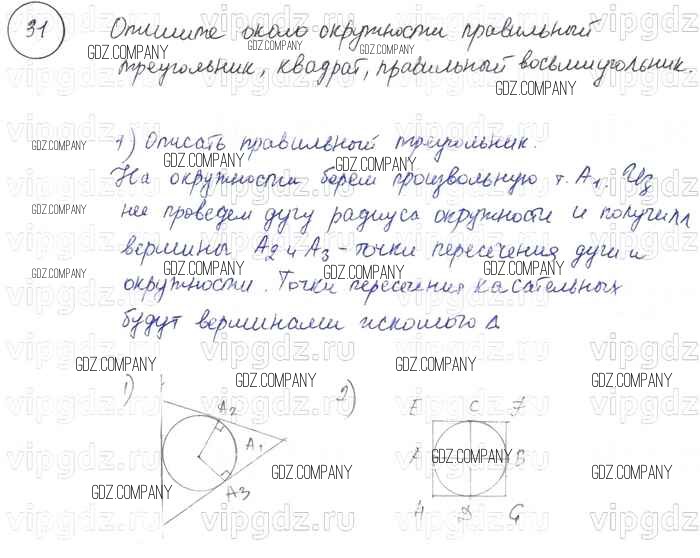 31
Опишите около окружности правильный
треугольник, квадрат, правильный восьмиугольник.
1) Описать правильный треугольник.
На окружности берём произвольную т. A1. Из
нее проведем дугу радиуса окружности и получим
вершины A2 и A3 - точки пересечения дуги и
окружности. Точки пересечения касательных
будут вершинами искомого Δ
1) A2 A1 A3
2) E C F
B
D G
GDZ.COMPANY
vipgdz.ru